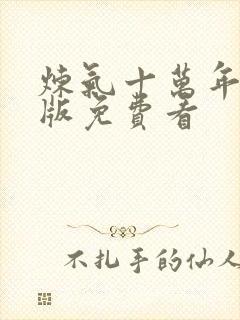 煉氣十萬年
版免費看
不扎手的仙人